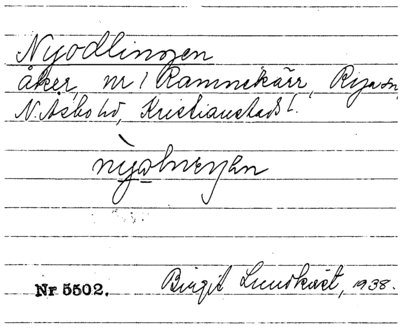 Nyodlingen
åker, nr 1 Ramnekärr, Rya sn,
N. Åsbo hd, Kristianstads l.
Nr 5502. Birgit Lundkvist, 1938.